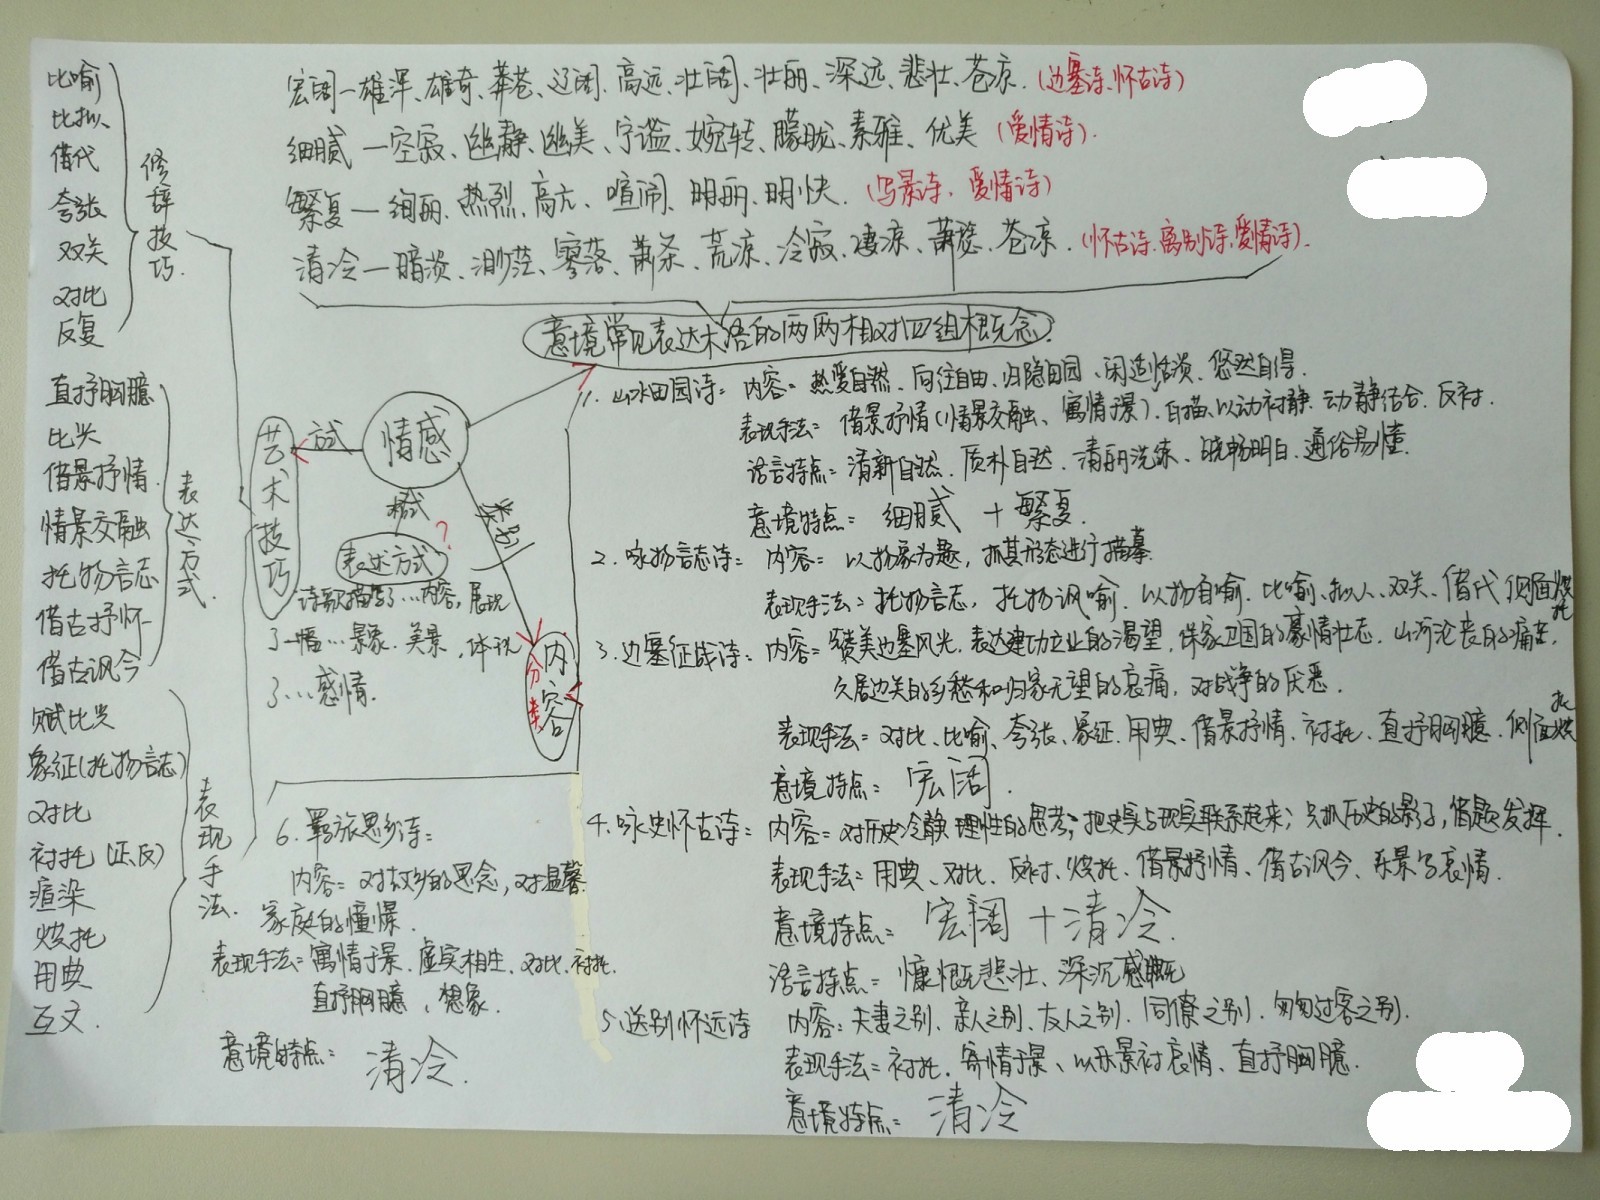 比喻
比拟、
借代
夸张
双关
对比
反复
修辞技巧.
直抒胸臆
比兴
借景抒情.
情景交融
托物言志
借古抒怀
借古讽今
表达方式.
赋比兴
象征(托物言志)
对比
衬托(正、反)
渲染
烘托
用典
互文.
表现手法.
宏阔—雄浑、雄奇、莽苍、辽阔、高远、壮阔、壮丽、深远、悲壮、苍凉.(边塞诗、怀古诗)
细腻—空寂、幽静、幽美、宁谧、婉转、朦胧、素雅、优美(爱情诗).
繁复—绚丽、热烈、高亢、喧闹、明丽、明快.(写景诗、爱情诗)
清冷—暗淡、渺茫、寥落、萧条、荒凉、冷寂、凄凉、萧瑟、苍凉.(怀古诗、离别诗、爱情诗).
意境常见表达术语的两两相对四组概念.
情感
艺术技巧
类别
表述方式?
诗歌描写了…内容,展现
了一幅…景象、美景,体现
了…感情.
内容
分类
1. 山水田园诗: 内容= 热爱自然、向往自由、归隐田园、闲适恬淡、悠然自得.
表现手法= 借景抒情(情景交融、寓情于景)、白描、以动衬静、动静结合、反衬.
语言特点= 清新自然、质朴自然、清丽洗练、晓畅明白、通俗易懂.
意境特点= 细腻+繁复.
2. 咏物言志诗: 内容= 以物象为题,抓其形态进行描摹.
表现手法= 托物言志,托物讽喻、以物自喻、比喻、拟人、双关、借代 侧面烘托
3. 边塞征战诗: 内容= 赞美边塞风光、表达建功立业的渴望、保家卫国的豪情壮志、山河沦丧的痛苦,
久居边关的乡愁和归家无望的哀痛,对战争的厌恶.
表现手法= 对比、比喻、夸张、象征、用典、借景抒情、衬托、直抒胸臆、侧面烘托
意境特点= 宏阔.
4. 咏史怀古诗: 内容= 对历史冷静理性的思考;把史实与现实联系起来;只抓历史的影子,借题发挥.
表现手法= 用典、对比、反衬、烘托、借景抒情、借古讽今、乐景写哀情.
意境特点= 宏阔+清冷.
语言特点= 慷慨悲壮、深沉感慨
5. 送别怀远诗 内容: 夫妻之别、亲人之别、友人之别、同僚之别、匆匆过客之别.
表现手法= 衬托、寄情于景、以乐景衬哀情、直抒胸臆.
意境特点= 清冷
6. 羁旅思乡诗:
内容= 对故乡的思念,对温馨
家庭的憧憬.
表现手法= 寓情于景、虚实相生、对比、衬托、
直抒胸臆、想象.
意境特点= 清冷.